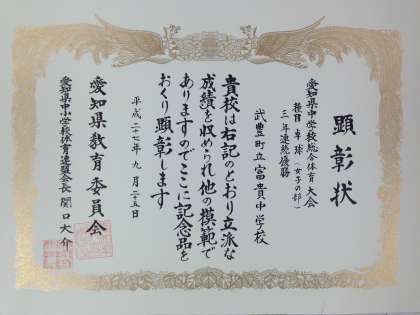 顕彰状
愛知県中学校総合体育大会
種目 卓球(女子の部)
三年連続優勝
武豊町立富貴中学校
貴校は右記のとおり立派な
成績を収められ他の模範で
ありますのでここに記念品を
おくり顕彰します
平成二十七年九月二十五日
愛知県教育委員会
愛知県中小学校体育連盟会長 関口大介